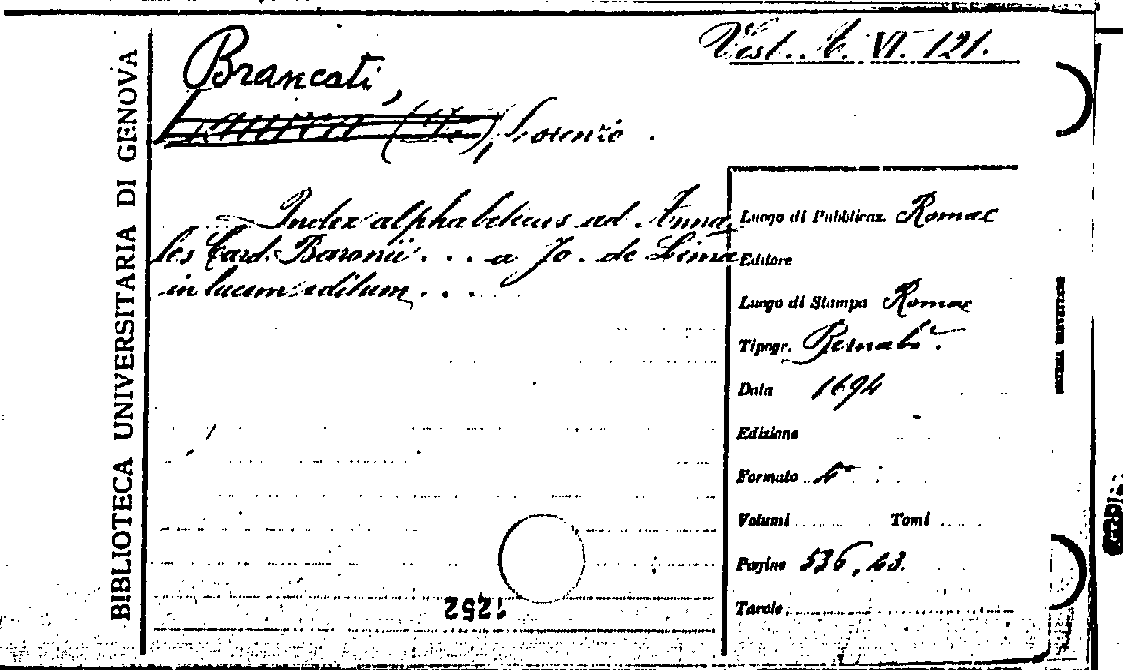 BIBLIOTECA UNIVERSITARIA DI GENOVA
Vest. C. VI. 121.
Brancati,
Laurea (De), Lorenzo.
Index alphabeticus ad Anna
les Card. Baronii . . . a Jo. de Lima
in lucem editum . . .
Luogo di Pubblicaz. Romae
Editore
Luogo di Stampa Romae
Tipogr. Bernabò.
Data 1694
Edizione
Formato 4°
Volumi Tomi
Pagine 536,
Tavole
1252